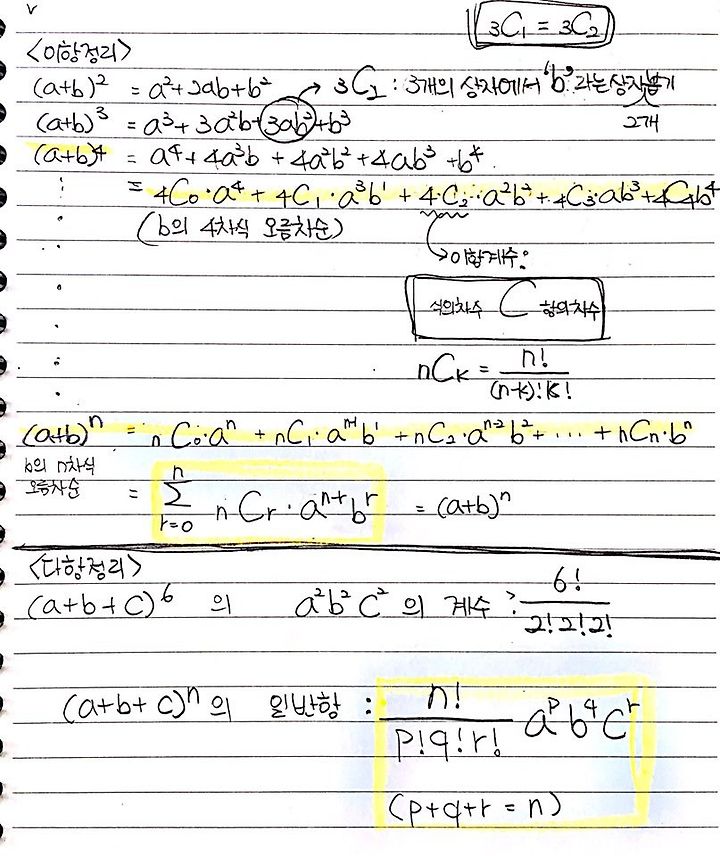 ₃C₁ = ₃C₂
<이항정리>
(a+b)² = a²+2ab+b² → ₃C₂ : 3개의 상자에서 'b'라는 상자 뽑기
(a+b)³ = a³+3a²b+3ab²+b³ 2개
(a+b)⁴ = a⁴+4a³b+4a²b²+4ab³+b⁴
= ₄C₀·a⁴ + ₄C₁·a³b¹ + ₄C₂·a²b² + ₄C₃·ab³ + ₄C₄b⁴
(b의 4차식 오름차순)
→이항계수:
식의차수 C 항의차수
nCk = n!/(n-k)!k!
(a+b)ⁿ = nC₀·aⁿ + nC₁·aⁿ⁻¹b¹ + nC₂·aⁿ⁻²b² + ⋯ + nCn·bⁿ
b의 n차식
오름차순 = Σ(r=0, n) nCr·aⁿ⁻ʳbʳ = (a+b)ⁿ
<다항정리>
(a+b+c)⁶ 의 a²b²c² 의 계수 : 6!/2!2!2!
(a+b+c)ⁿ의 일반항 : n!/p!q!r! a^p b^q c^r
(p+q+r = n)